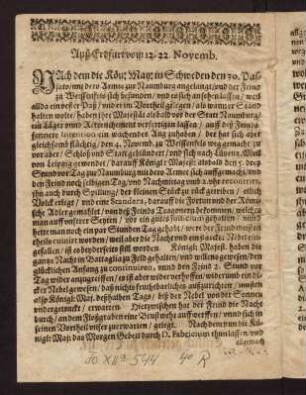 Auß Erdfurt vom 12. 22. Novemb.
Nach dem die Kön: May: in Schweden den 30. Pas-
sato, mit dero Armee zur Naumburg angelangt/ und der Feind
zu Weissenfels sich befunden/ und es sich ansehen lassen/ weil
allda ein vester Paß/ und er im Vortheil gelegen/ als wann er Stand
halten wolte/ haben Ihre Majestät alsobald vor der Statt Naumburg
ein Läger und Retrenchement verfertigen lassen/ auff daß Ihme
femmere einen wachenden Aug zuhaben/ der hat sich aber
gleich somals flüchtig/ den 4. Novemb. zu Weissenfels weg gemacht/ zu
vor aber/ Schloß und Statt geblündert/ und sich nach Lützen/ Meil
von Leipzig gewendet/ darauff Königl: Majest: alsobald den 5. zwo
Stund vor Tag zur Naumburg mit dero Armee sich auffgemacht/ und
den Feind noch selbigen Tag/ und Nachmittag umb 2. uhr
ihn auch durch Spillung/ der kleinen Stück zu rück getrieben/ etlich
Volck erlegt/ und eine Standera, darauff die Fortun und der Römi-
sche Adler gemahlet/ von deß Feinds Troppen bekommen/ welche
man auff unserer Seyten/ vor ein gutes omen gehalten/ und
hette man noch ein par Stunden Tag gehabt/ were der Feind meisten-
theils ruinirt worden/ weil aber die Nacht und ein starcker Nebel ein-
gefallen/ ist es beyderseits still worden. Königl: Majest: haben die
gantze Nacht in Battaglia zu Feld gehalten/ und willens gewesen/ den
glücklichen Anfang zu continuiren, unnd den Feind 2. Stund vor
Tag wider anzugreiffen/ es ist aber wider verhoffen/ und umb ein dic-
ker Nebel gewesen/ daß nichts fruchtbarliches auszurichten/ musten
also Königl: May: deßhalben Tags/ biß der Nebel von der Sonnen
undergetruckt/ erwarten. Hierzwischen hat der Feind die Nacht
durch/ an dem Floßgraben eine Brustwehr auffworffen/ unnd sich in
seinen Vortheil besser zuerwarten/ gelegt. Nach dem nun die Kö-
nigl: May: das Morgen Gebett durch D. Fabricium thun lassen/ und
allernach
40 XII a 544 4° R